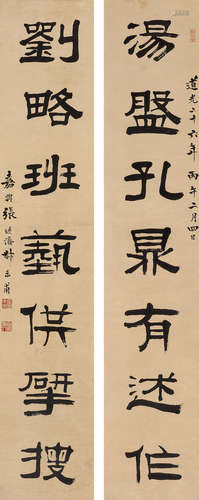 道光二十六年丙午二月四日
湯盤孔鼎有述作
劉略班藝供擘搜
嘉興張廷濟叔未甫